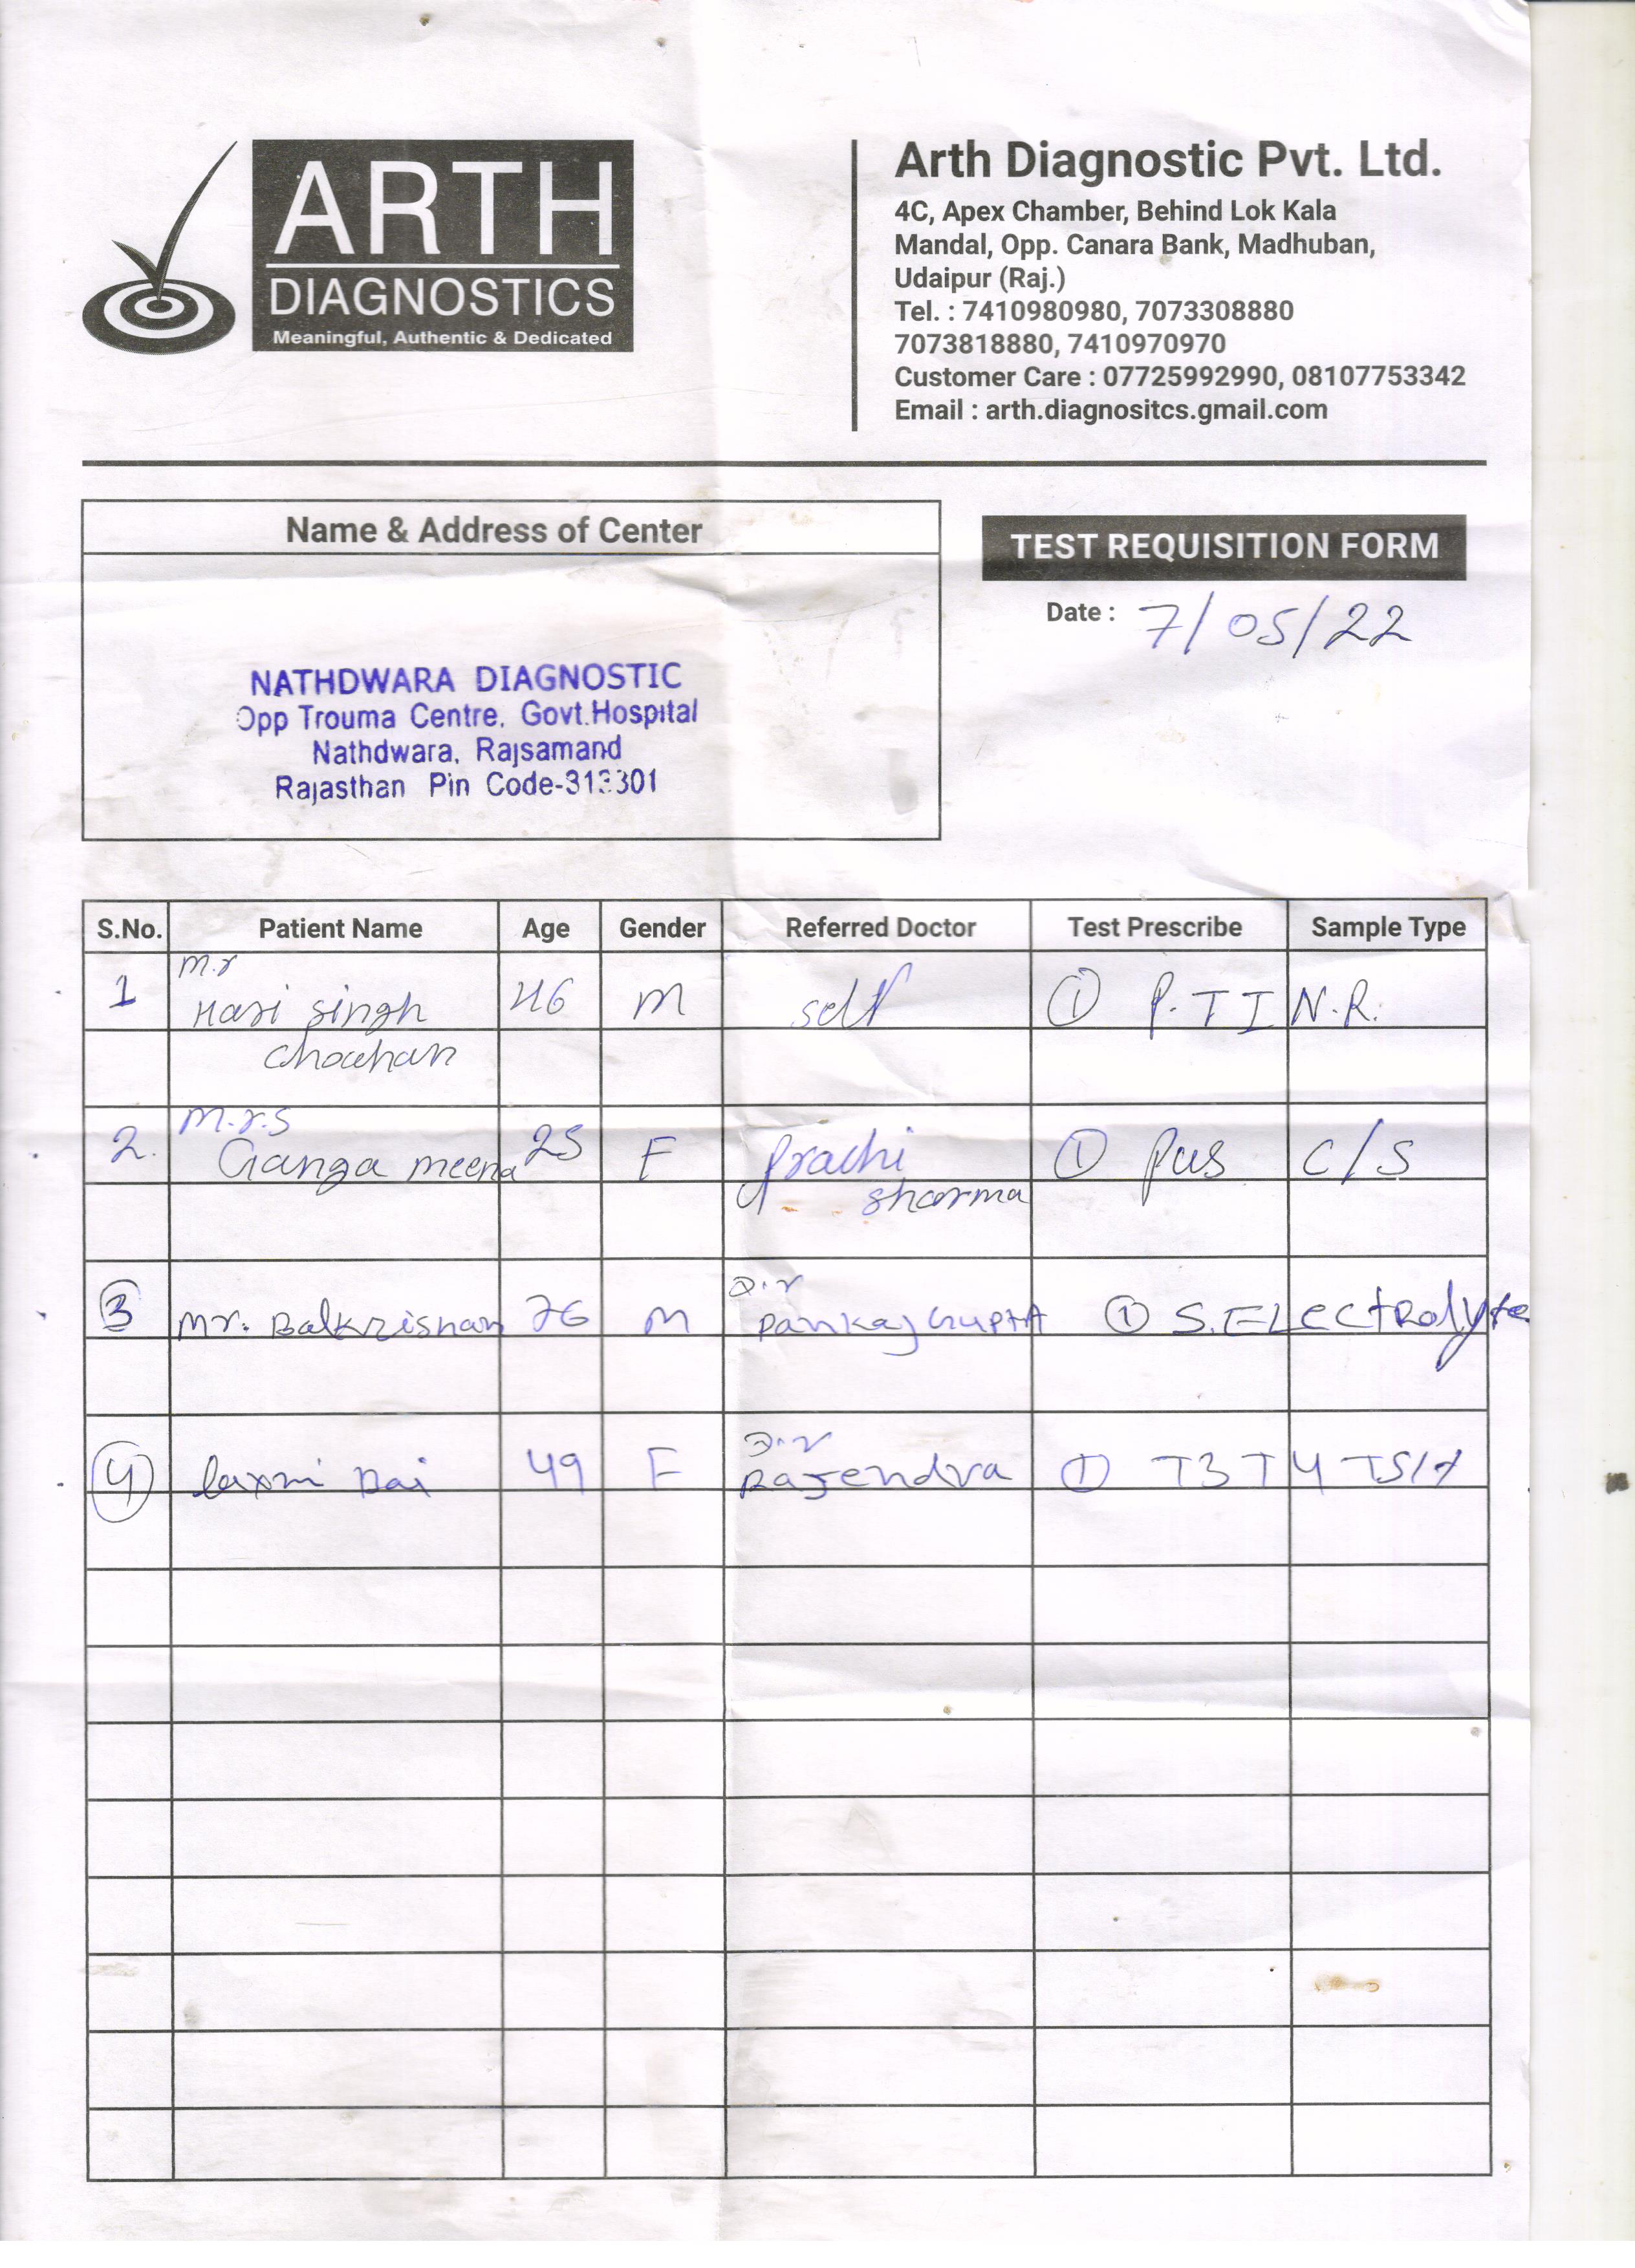 ARTH
DIAGNOSTICS
Meaningful, Authentic & Dedicated
Arth Diagnostic Pvt. Ltd.
4C, Apex Chamber, Behind Lok Kala
Mandal, Opp. Canara Bank, Madhuban,
Udaipur (Raj.)
Tel. : 7410980980, 7073308880
7073818880, 7410970970
Customer Care : 07725992990, 08107753342
Email : arth.diagnositcs.gmail.com
Name & Address of Center
TEST REQUISITION FORM
Date : 7/05/22
NATHDWARA DIAGNOSTIC
Opp Trouma Centre. Govt.Hospital
Nathdwara, Rajsamand
Rajasthan Pin Code-313301
S.No. Patient Name Age Gender Referred Doctor Test Prescribe Sample Type
M.r
1 Hari singh 46 M self ① P.T I N.R.
chouhan
M.r.s
2. Ganga meena 25 F prachi ① Pus C/S
sharma
D.r
③ Mr. Balkrishan 76 M Pankaj Gupta ① S.ELectrolyte
D.r
④ laxmi Bai 49 F Rajendra ① T3 T4 TSH